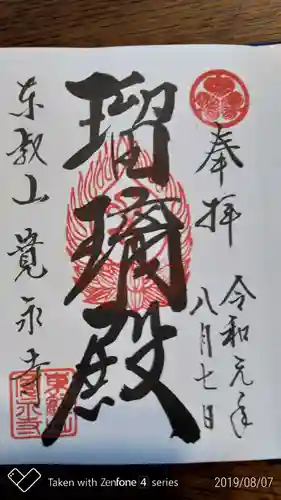 奉拝
令和元年
八月七日
瑠璃殿
東叡山 寛永寺
Taken with Zenfone 4 series
2019/08/07